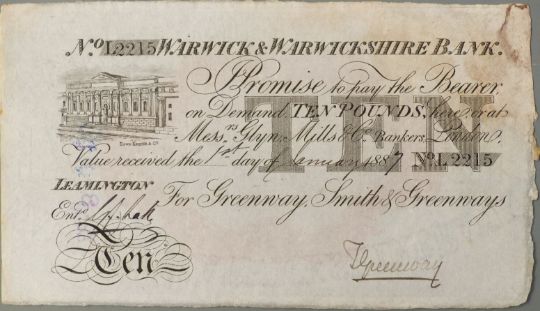 No L2215 WARWICK & WARWICKSHIRE BANK.
I Promise to pay the Bearer
on Demand TEN POUNDS, here or at
Mess.rs Glyn, Mills & Co. Bankers, London.
Value received the 1st day of January 1887 No L2215
TEN
LEAMINGTON For Greenway, Smith & Greenways
Entd
Ten
Greenway